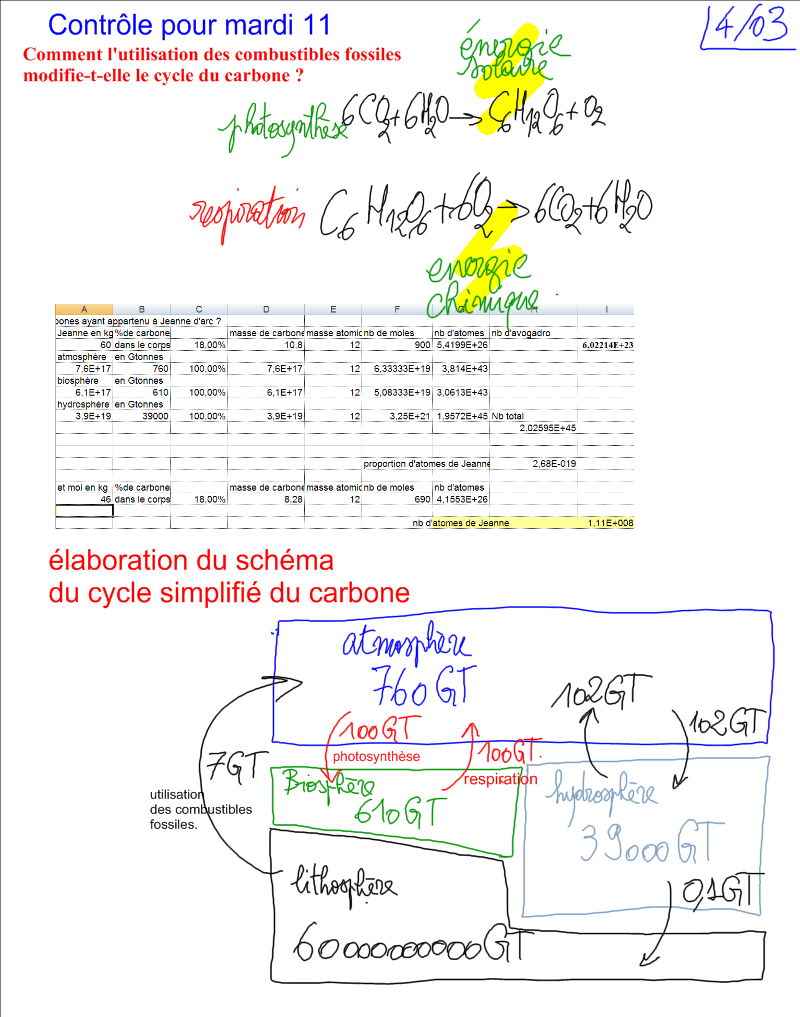 Contrôle pour mardi 11
4/03
Comment l'utilisation des combustibles fossiles
modifie-t-elle le cycle du carbone ?
énergie
solaire
photosynthèse 6CO2+6H2O → C6H12O6+O2
respiration C6H12O6+6O2 → 6CO2+6H2O
énergie
chimique
A B C D E F G H I
bones ayant appartenu à Jeanne d'arc ?
Jeanne en kg %de carbone masse de carbone masse atomic nb de moles nb d'atomes nb d'avogadro
60 dans le corps 18,00% 10,8 12 900 5,4199E+26 6,02214E+23
atmosphère en Gtonnes
7,6E+17 760 100,00% 7,6E+17 12 6,33333E+19 3,814E+43
biosphère en Gtonnes
6,1E+17 610 100,00% 6,1E+17 12 5,08333E+19 3,0613E+43
hydrosphère en Gtonnes
3,9E+19 39000 100,00% 3,9E+19 12 3,25E+21 1,9572E+45 Nb total
2,02595E+45
proportion d'atomes de Jeanne 2,68E-019
et moi en kg %de carbone masse de carbone masse atomic nb de moles nb d'atomes
46 dans le corps 18,00% 8,28 12 690 4,1553E+26
nb d'atomes de Jeanne 1,11E+008
élaboration du schéma
du cycle simplifié du carbone
atmosphère
760 GT
102GT
100GT
102GT
photosynthèse
100GT.
7GT
respiration
Biosphère
610 GT
hydrosphère
39000 GT
utilisation
des combustibles
fossiles.
lithosphère
0,1GT
60000000000GT